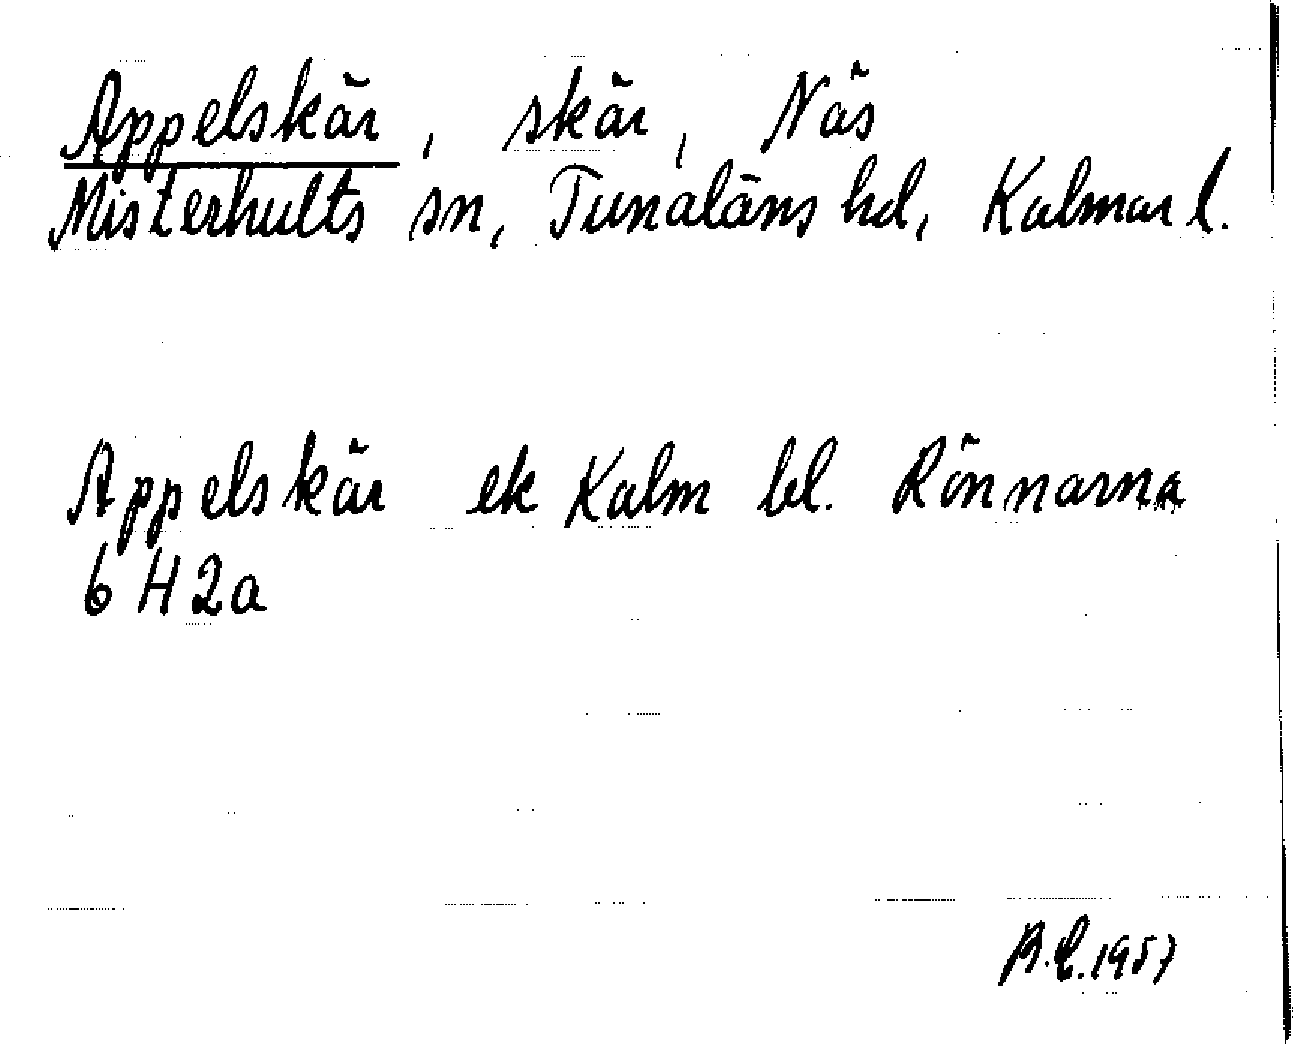 Appelskär, skär, Näs
Misterhults sn, Tunaläns hd, Kalmar l.
Appelskär ek Kalm bl. Rönnarna
6 H 2a
B.E. 1957